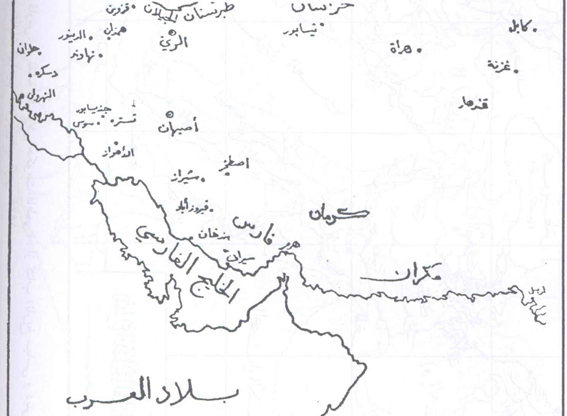 قزوين
طبرستان
الجيلان
خرسان
همدان
الدينور
نهاوند
الري
نيسابور
هراة
كابل
غزنة
حلوان
دسكره
النهروان
قندهار
جنديسابور
تستره
سوس
أصبهان
الأهواز
اصطخر
شيراز
فيروزآباد
كرمان
فارس
هرمز
سيراف
مكران
الخليج الفارسي
بلاد العرب